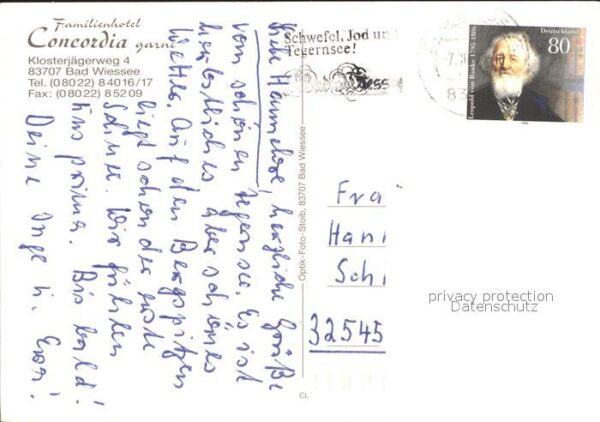 Familienhotel
Concordia garni
Klosterjägerweg 4
83707 Bad Wiessee
Tel. (08022) 84016/17
Fax: (08022) 85209
Schwefel, Jod un
Tegernsee!
Bad Wiess
Deutschland
80
Leopold von Ranke 1795-1886
Liebe Hannelore, herzliche Grüße
vom schönen Tegernsee. Es ist
herbstliches aber schönes
Wetter. Auf den Bergspitzen
liegt schon der erste
Schnee. Wir fühlen
uns prima. Bis bald!
Deine Inge u.
Optik-Foto-Stoib, 83707 Bad Wiessee
Fra
Han
Sch
32545
privacy protection
Datenschutz
CL